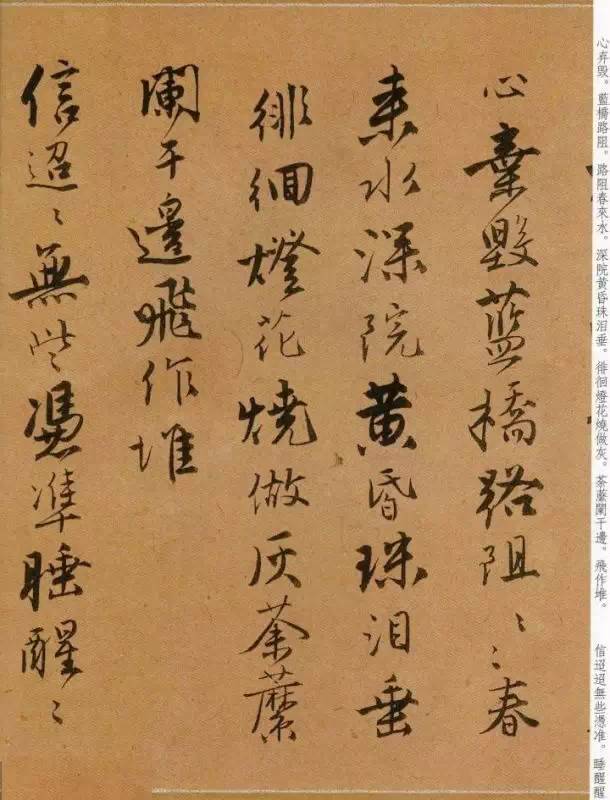 心棄毀藍橋路阻〻〻春
來水深院黄昏珠泪垂
徘徊燈花燒做灰荼蘼
闌干邊飛作堆
信迢〻無些憑準睡醒〻
心弃毁。藍橋路阻。路阻春來水。深院黄昏珠泪垂。徘徊燈花燒做灰。荼蘼闌干邊。飛作堆。
信迢迢無些憑准。睡醒醒